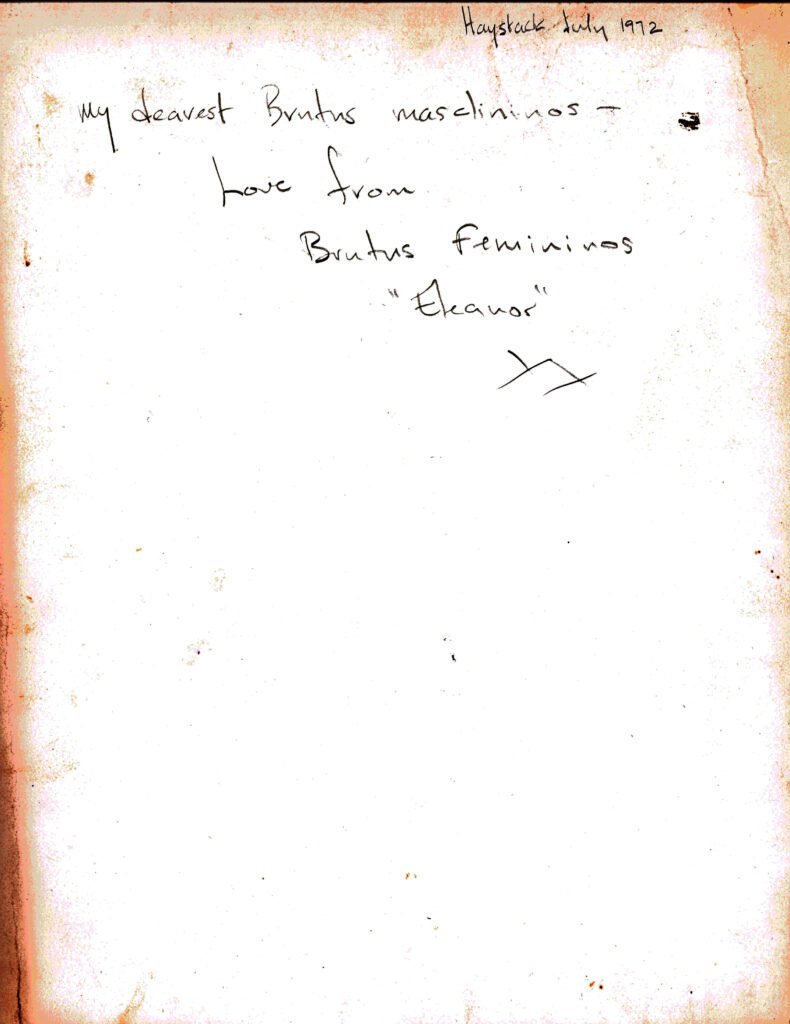 Haystack July 1972
My dearest Brutus masclininos –
Love from
Brutus Femininos
"Eleanor"